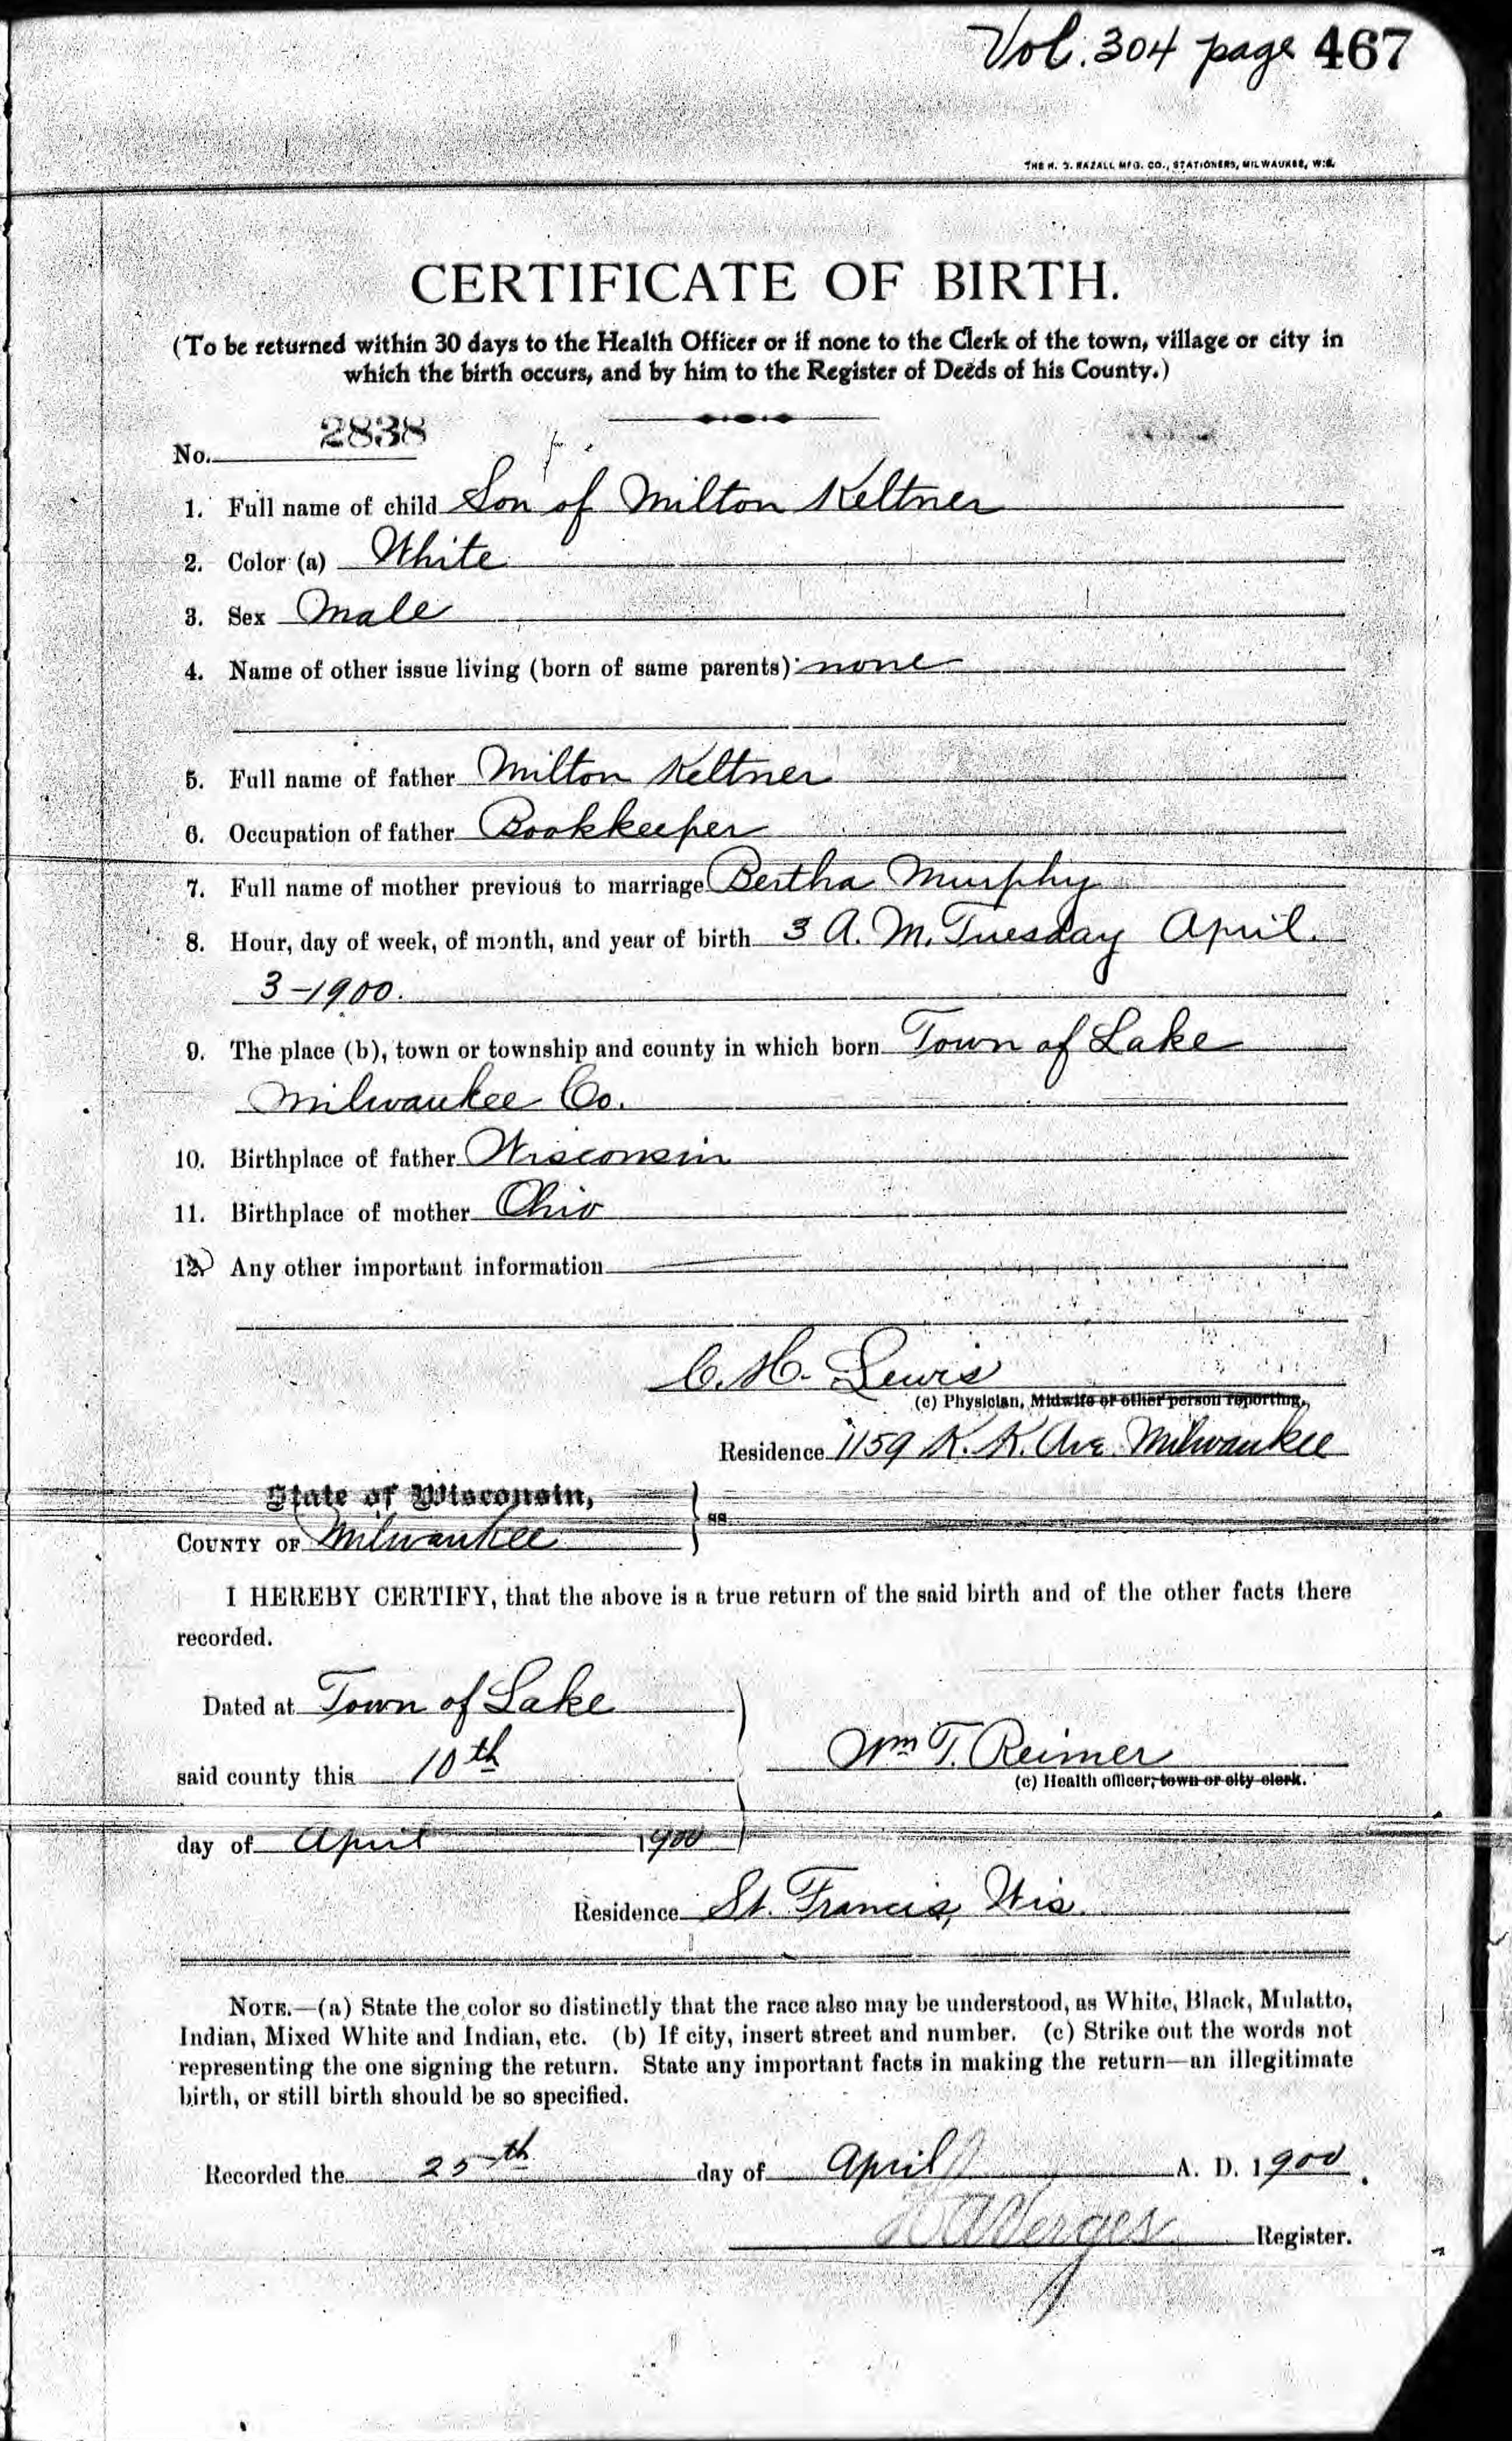 Vol. 304 page 467
THE H. J. RAZALL MFG. CO., STATIONERS, MILWAUKEE, WIS.
CERTIFICATE OF BIRTH.
(To be returned within 30 days to the Health Officer or if none to the Clerk of the town, village or city in
which the birth occurs, and by him to the Register of Deeds of his County.)
No. 2838
1. Full name of child Son of Milton Keltner
2. Color (a) White
3. Sex Male
4. Name of other issue living (born of same parents) none
5. Full name of father Milton Keltner
6. Occupation of father Bookkeeper
7. Full name of mother previous to marriage Bertha Murphy
8. Hour, day of week, of month, and year of birth 3 A. M. Tuesday April.
3-1900.
9. The place (b), town or township and county in which born Town of Lake
Milwaukee Co.
10. Birthplace of father Wisconsin
11. Birthplace of mother Ohio
12. Any other important information
C. H. Lewis
(c) Physician, Midwife or other person reporting.
Residence 1159 K. K. Ave Milwaukee
State of Wisconsin,
ss.
COUNTY OF Milwaukee
I HEREBY CERTIFY, that the above is a true return of the said birth and of the other facts there
recorded.
Dated at Town of Lake
said county this 10th
Wm T. Reimer
(c) Health officer, town or city clerk.
day of April 1900
Residence St. Francis, Wis
NOTE.—(a) State the color so distinctly that the race also may be understood, as White, Black, Mulatto,
Indian, Mixed White and Indian, etc. (b) If city, insert street and number. (c) Strike out the words not
representing the one signing the return. State any important facts in making the return—an illegitimate
birth, or still birth should be so specified.
Recorded the 25th day of April A. D. 1900.
Register.